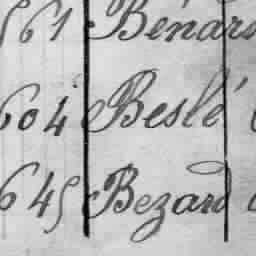 561 Bénard
604 Beslé
645 Bezard